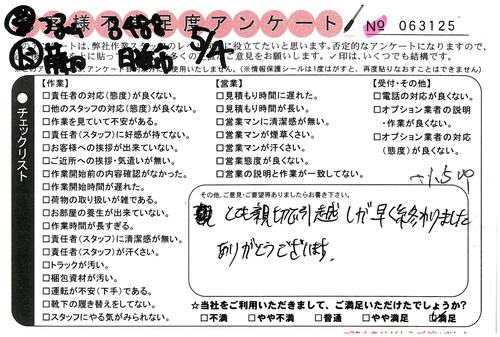 お客様不満足度アンケート
No 063125
5/4
本アンケートは、弊社作業スタッフのレベル
に役立てたいと思います。否定的なアンケートになりますので、
多くのご意見をお願いします。✓印は、いくつでも結構です。
使用いたしません。(※情報保護シールは1度はがすと、再度貼りなおすことはできません)
●チェックリスト
【作業】
□責任者の対応(態度)が良くない。
□他のスタッフの対応(態度)が良くない。
□作業を見ていて不安がある。
□責任者(スタッフ)に好感が持てない。
□お客様への挨拶が出来ていない。
□ご近所への挨拶・気遣いが無い。
□作業開始前の内容確認がなかった。
□作業開始時間が遅れた。
□荷物の取り扱いが雑である。
□お部屋の養生が出来ていない。
□作業時間が長すぎる。
□責任者(スタッフ)に清潔感が無い。
□責任者(スタッフ)が汗くさい。
□トラックが汚い。
□梱包資材が汚い。
□運転が不安(下手)である。
□靴下の履き替えをしてない。
□スタッフにやる気がみられない。
【営業】
□見積もり時間に遅れた。
□見積もり時間が長い。
□営業マンに清潔感が無い。
□営業マンが煙草くさい。
□営業マンが汗くさい。
□営業態度が良くない。
□営業の説明と作業が一致してない。
【受付・その他】
□電話の対応が良くない。
□オプション業者の説明
・作業が良くない。
□オプション業者の対応
(態度)が良くない。
その他、ご意見・ご要望等ありましたらお書き下さい。
とても親切で引越しが早く終わりました
ありがとうございます。
☆当社をご利用いただきまして、ご満足いただけたでしょうか?
□不満 □やや不満 □普通 □やや満足 ☑満足